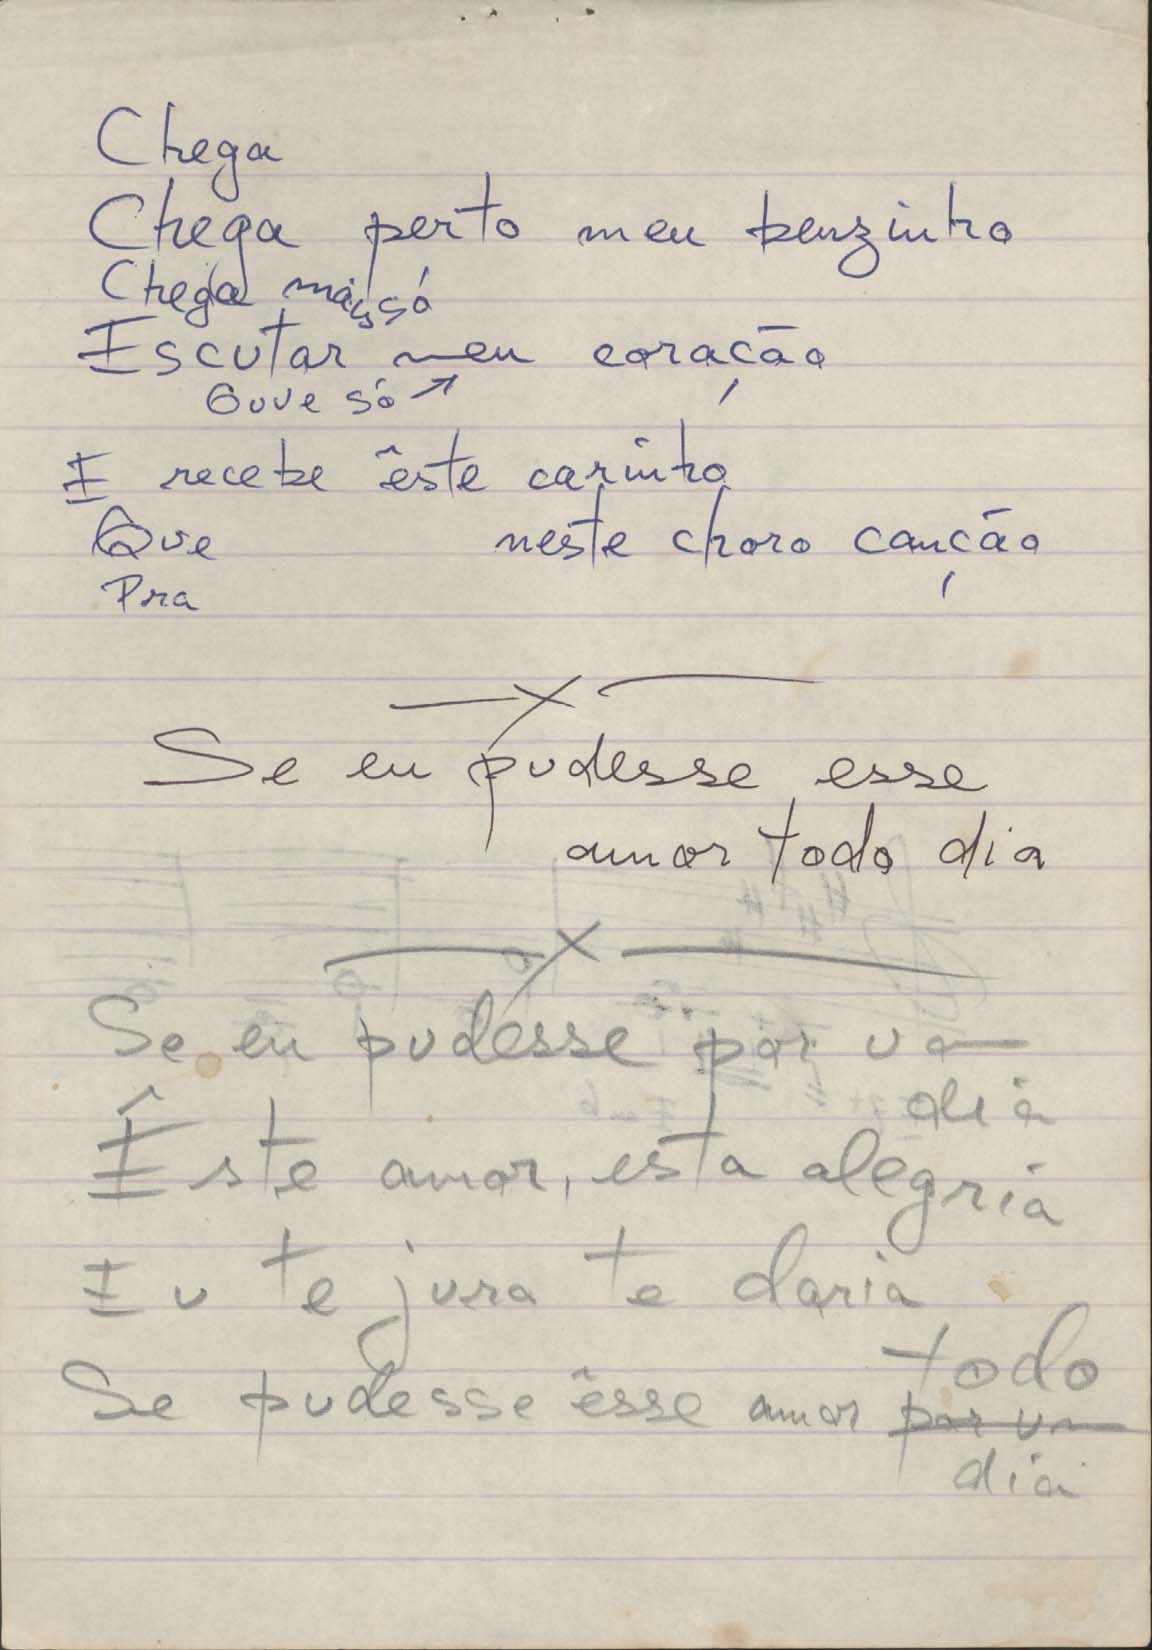 Chega
Chega perto meu benzinho
Chega mais só
Escutar meu coração
Ouve só
E recebe êste carinho
Que neste choro canção
Pra
Se eu pudesse esse
amor todo dia
Se eu pudesse por um
dia
Êste amor, esta alegria
Eu te jura te daria
todo
Se pudesse êsse amor por um
dia